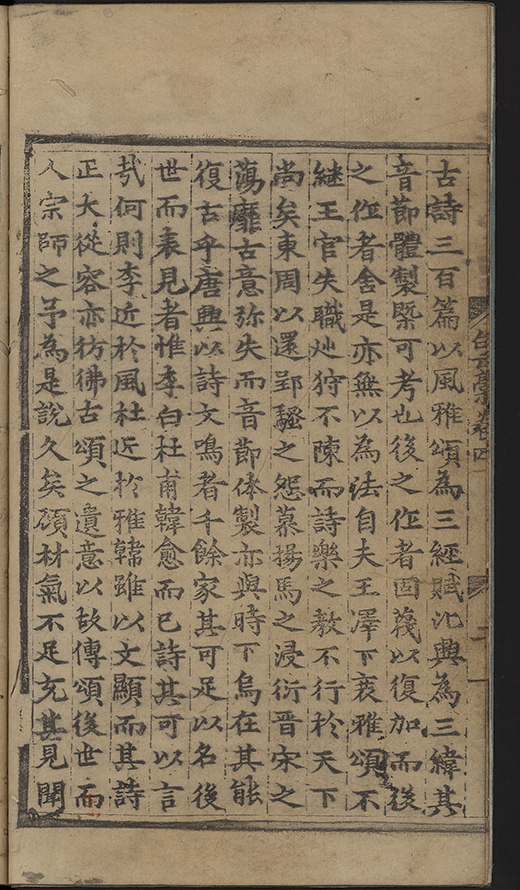 古詩三百篇以風雅頌為三經賦比興為三緯其
音節體製槩可考也後之作者固蔑以復加而後
之作者舍是亦無以為法自夫王澤下衰雅頌不
継王官失職廵狩不陳而詩樂之教不行於天下
尚矣東周以還郢騷之怨慕揚馬之浸衍晋宋之
蕩靡古意弥失而音節体製亦與時下烏在其能
復古乎唐興以詩文鳴者千餘家其可足以名後
世而表見者惟李白杜甫韓愈而已詩其可以言
㢤何則李近於風杜近於雅韓雖以文顯而其詩
正大從容亦彷彿古頌之遺意以故傳頌後世而
人宗師之予為是說久矣顧材氣不足充其見聞